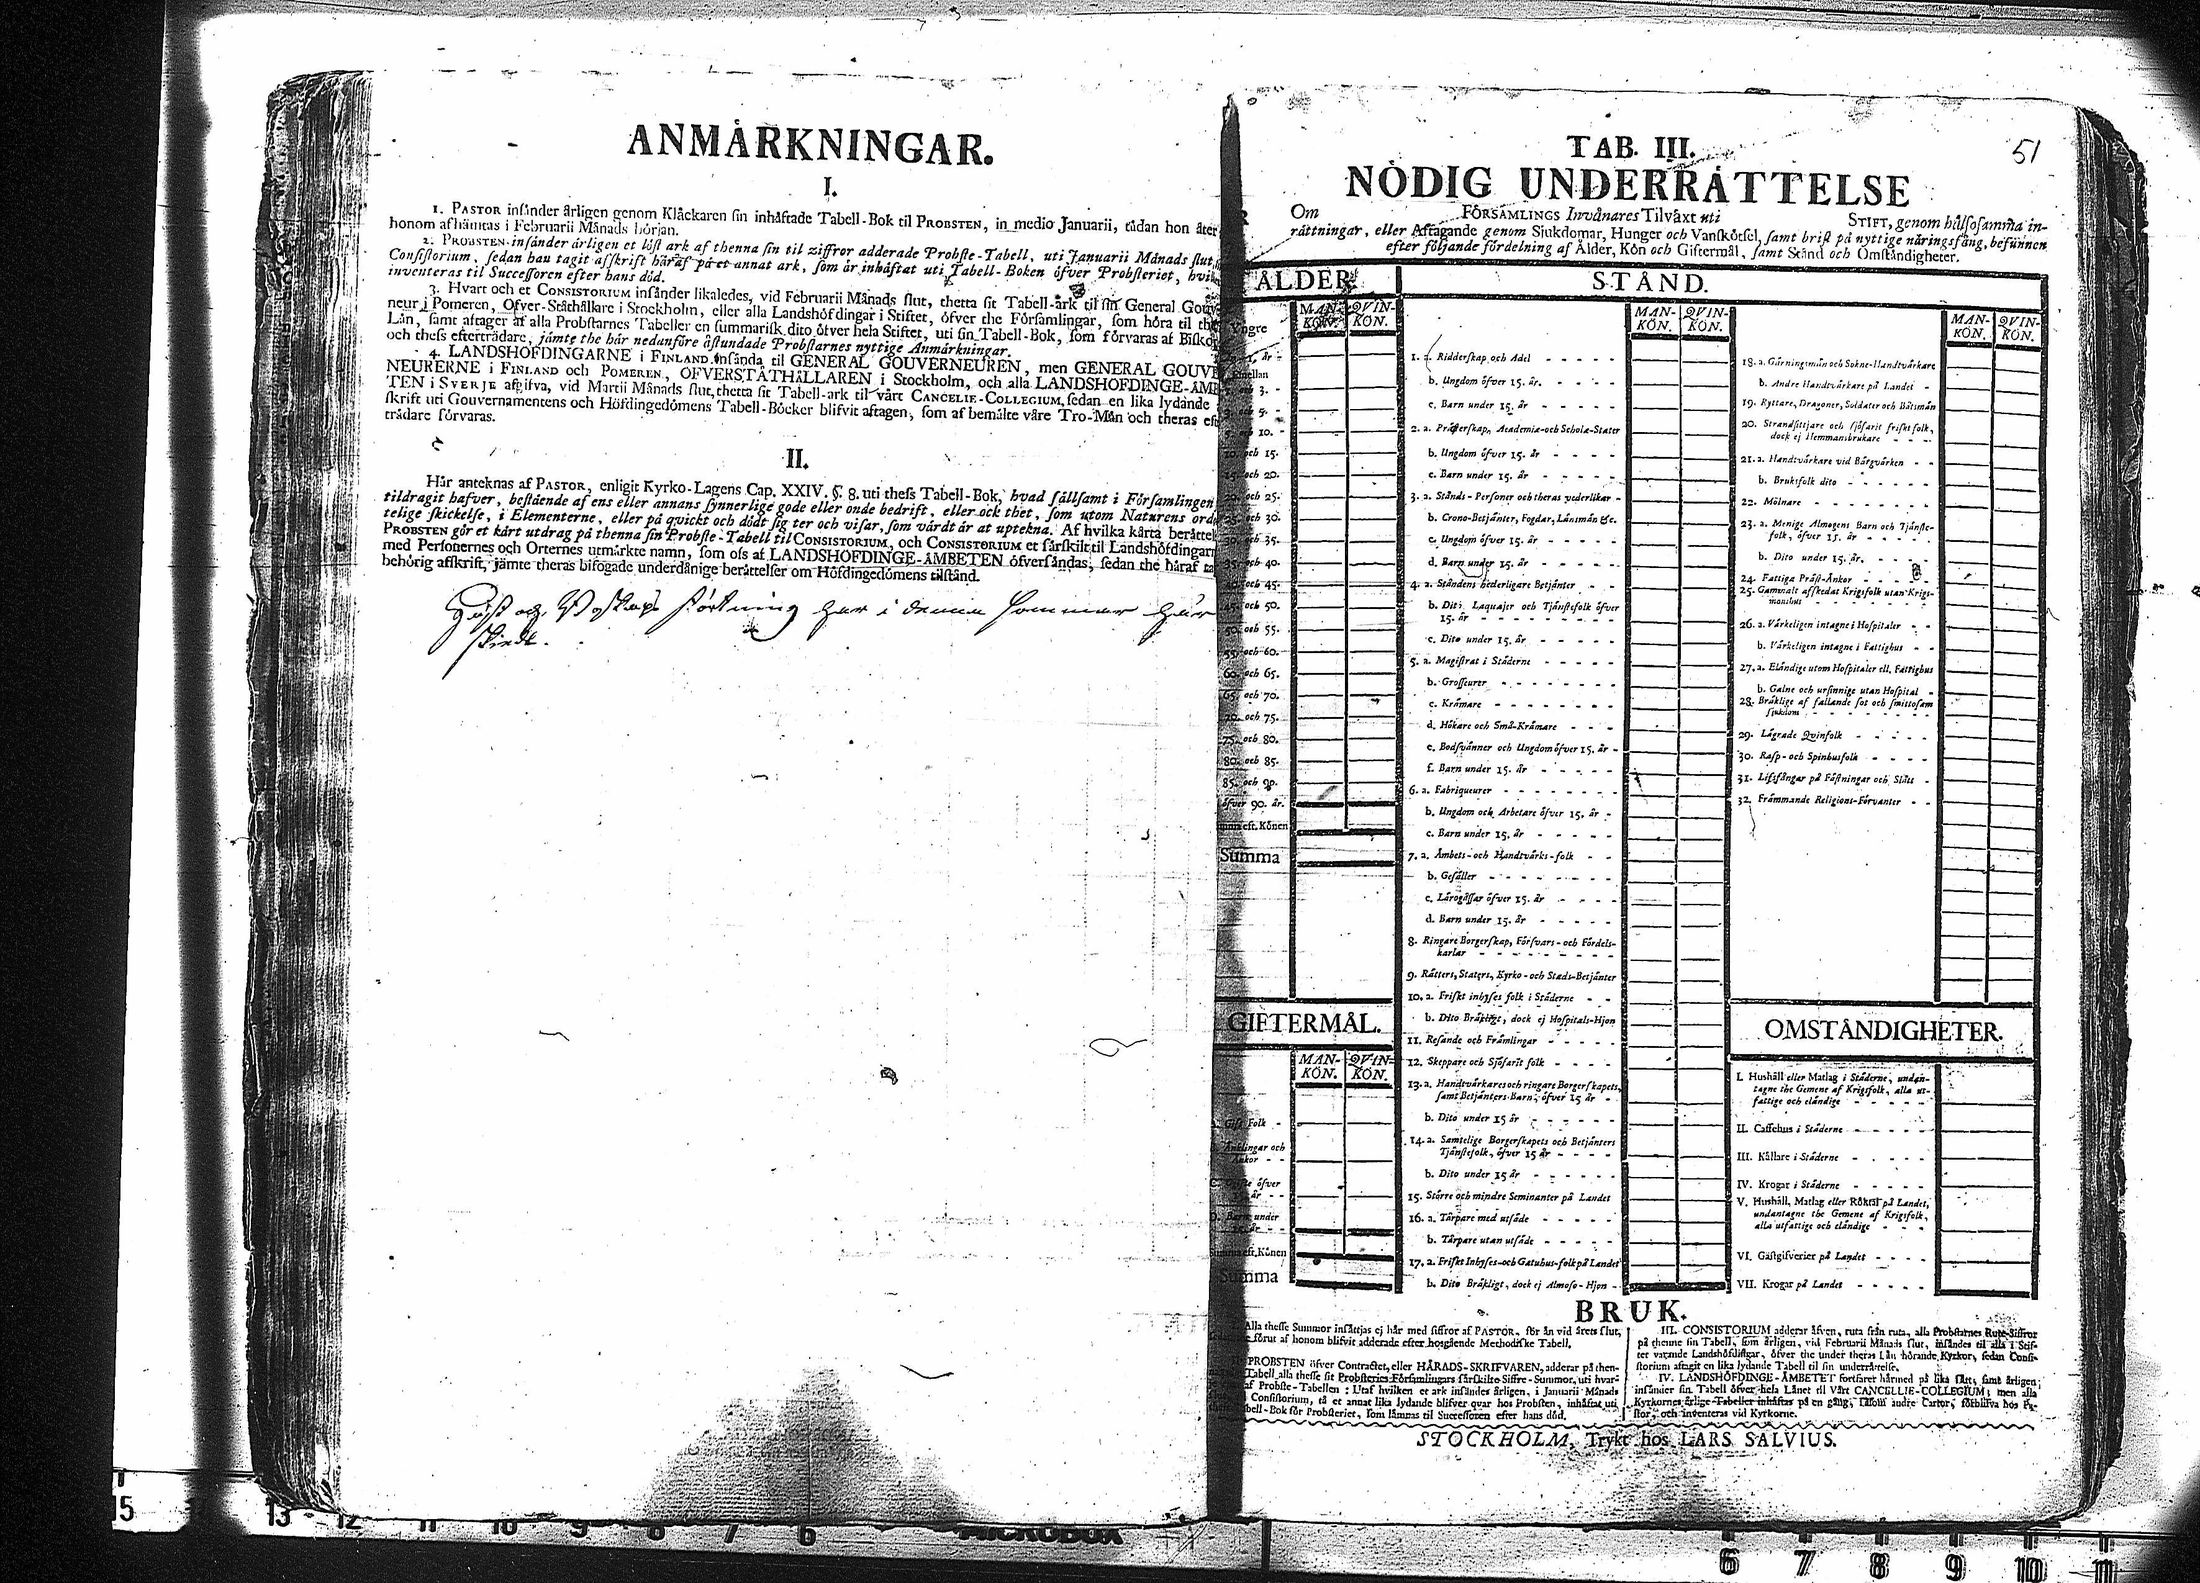 ANMÄRKNINGAR.
I.
1. PASTOR insänder årligen genom Klåckaren sin inhäftade Tabell-Bok til PROBSTEN, in medio Januarii, tådan hon åter
honom afhämtas i Februarii Månads början.
2. PROBSTEN insänder årligen et löst ark af thenna sin til ziffror adderade Probste-Tabell, uti Januarii Månads slut,
Consistorium, sedan han tagit afskrift häraf på et annat ark, som är inhäftat uti Tabell-Boken öfver Probsteriet,
inventeras til Successoren efter hans död.
3. Hvart och et CONSISTORIUM insänder likaledes, vid Februarii Månads slut, thetta sit Tabell-ark til sin General
neur i Pomeren, Ofver-Ståthållare i Stockholm, eller alla Landshöfdingar i Stiftet, öfver the Församlingar, som höra til
Län, samt aftager af alla Probstarnes Tabeller en summarisk dito öfver hela Stiftet, uti sin Tabell-Bok, som förvaras af
och thess efterträdare, jämte the här nedanföre åstundade Probstarnes nyttige Anmärkningar.
4. LANDSHÖFDINGARNE i FINLAND insända til GENERAL GOUVERNEUREN, men GENERAL
NEURERNE i FINLAND och POMEREN, OFVERSTÅTHÅLLAREN i Stockholm, och alla LANDSHÖFDINGE-
TEN i SVERJE afgifva, vid Martii Månads slut, thetta sit Tabell-ark til vårt CANCELIE-COLLEGIUM, sedan en lika lydande
skrift uti Gouvernamentens och Höfdingedömens Tabell-Böcker blifvit aftagen, som af bemälte våre Tro-Män och theras
trädare förvaras.
II.
Här anteknas af PASTOR, enligit Kyrko-Lagens Cap. XXIV. §. 8. uti thess Tabell-Bok, hvad sällsamt i Församlingen
tildragit hafver, bestående af ens eller annans synnerlige gode eller onde bedrift, eller ock thet, som utom Naturens
telige skickelse, i Elementerne, eller på quickt och dödt sig ter och visar, som värdt är at uptekna. Af hvilka kårta
PROBSTEN gör et kårt utdrag på thenna sin Probste-Tabell til CONSISTORIUM, och CONSISTORIUM et särskilt til
med Personernes och Orternes utmärkte namn, som oss af LANDSHÖFDINGE-ÄMBETEN öfversändas, sedan the häraf
behörig afskrift, jämte theras bifogade underdånige berättelser om Höfdingedömens tilstånd.
och Boskaps har i denna Sommar här
skiedt.
51
TAB. III.
NÖDIG UNDERRÄTTELSE
Om FÖRSAMLINGS Invånares Tilväxt uti STIFT, genom hälsosamma in-
rättningar, eller Aftagande genom Sjukdomar, Hunger och Vanskötsel, samt brist på nyttige näringsfång, befunnen
efter följande fördelning af Ålder, Kön och Giftermål, samt Stånd och Omständigheter.
ÅLDER.
MAN-KÖN. QVIN-KÖN.
Yngre
och 3.
och 5.
och 10.
10. och 15.
15. och 20.
20. och 25.
25. och 30.
30. och 35.
35. och 40.
40. och 45.
45. och 50.
50. och 55.
55. och 60.
60. och 65.
65. och 70.
70. och 75.
75. och 80.
80. och 85.
85. och 90.
öfver 90. år.
Summa eft. Könen
Summa
GIFTERMÅL.
MAN-KÖN. QVIN-KÖN.
Gift Folk
Änklingar och
Änkor
öfver
år
Barn under
år
Summa eft. Könen
Summa
STÅND.
MAN-KÖN. QVIN-KÖN.
1. a. Ridderskap och Adel
b. Ungdom öfver 15. år.
c. Barn under 15. år
2. a. Prästerskap, Academiæ-och Scholæ-Stater
b. Ungdom öfver 15. år
c. Barn under 15. år
3. a. Stånds-Personer och theras vederlikar
b. Crono-Betjänter, Fogdar, Länsmän &c.
c. Ungdom öfver 15. år
d. Barn under 15. år
4. a. Ståndens hederligare Betjänter
b. Dito Laquajer och Tjänstefolk öfver
15. år
c. Dito under 15. år
5. a. Magistrat i Städerne
b. Grosseurer
c. Krämare
d. Hökare och Små-Krämare
e. Bodsvänner och Ungdom öfver 15. år
f. Barn under 15. år
6. a. Fabriqueurer
b. Ungdom och Arbetare öfver 15. år
c. Barn under 15. år
7. a. Ämbets-och Handtvärks-folk
b. Gesäller
c. Lärogåssar öfver 15. år
d. Barn under 15. år
8. Ringare Borgerskap, Försvars-och Fördels-
karlar
9. Rätters, Staters, Kyrko-och Stads-Betjänter
10. a. Friskt inhyses folk i Städerne
b. Dito Bräkligt, dock ej Hospitals-Hjon
11. Resande och Främlingar
12. Skeppare och Sjöfarit folk
13. a. Handtvärkares och ringare Borgerskapets,
samt Betjänters Barn, öfver 15 år
b. Dito under 15 år
14. a. Samtelige Borgerskapets och Betjänters
Tjänstefolk, öfver 15 år
b. Dito under 15 år
15. Större och mindre Seminanter på Landet
16. a. Tårpare med utsäde
b. Tårpare utan utsäde
17. a. Friskt Inhyses-och Gatuhus-folk på Landet
b. Dito Bräkligt, dock ej Almoso-Hjon
MAN-KÖN. QVIN-KÖN.
18. a. Gärningsmän och Sokne-Handtvärkare
b. Andre Handtvärkare på Landet
19. Ryttare, Dragoner, Soldater och Båtsmän
20. Strandsittjare och sjöfarit friskt folk,
dock ej Hemmansbrukare
21. a. Handtvärkare vid Bärgvärken
b. Bruksfolk dito
22. Mölnare
23. a. Menige Almogens Barn och Tjänste-
folk, öfver 15. år
b. Dito under 15. år.
24. Fattiga Präst-Änkor
25. Gammalt affskedat Krigsfolk utan Krigs-
manshus
26. a. Värkeligen intagne i Hospitaler
b. Värkeligen intagne i Fattighus
27. a. Eländige utom Hospitaler ell. Fattighus
b. Galne och ursinnige utan Hospital
28. Bräklige af fallande sot och smittosam
sjukdom
29. Lägrade Qvinfolk
30. Rasp-och Spinhusfolk
31. Lifsfångar på Fästningar och Slått
32. Främmande Religions-Förvanter
OMSTÄNDIGHETER.
I. Hushåll eller Matlag i Städerne, undan-
tagne the Gemene af Krigsfolk, alla ut-
fattige och eländige
II. Caffehus i Städerne
III. Källare i Städerne
IV. Krogar i Städerne
V. Hushåll, Matlag eller Röktal på Landet,
undantagne the Gemene af Krigsfolk,
alla utfattige och eländige
VI. Gästgifverier på Landet
VII. Krogar på Landet
BRUK.
Alla thesse Summor insättjas ej här med siffror af PASTOR, för än vid årets slut,
förut af honom blifvit adderade efter hosgående Methodiske Tabell.
PROBSTEN öfver Contractet, eller HÄRADS-SKRIFVAREN, adderar på then-
Tabell alla thesse sit Probsteries Församlingars särskilte Siffre-Summor, uti hvar-
af Probste-Tabellen: Utaf hvilken et ark insändes årligen, i Januarii Månads
Consistorium, tå et annat lika lydande blifver qvar hos Probsten, inhäftat uti
bell-Bok för Probsteriet, som lämnas til Successoren efter hans död.
III. CONSISTORIUM adderar äfven, ruta från ruta, alla Probstarnes Rute-Siffror
på thenne sin Tabell, som årligen, vid Februarii Månads slut, insändes til alla i Stif-
tet varande Landshöfdingar, öfver the under theras Län hörande Kyrkor, sedan Consi-
storium aftagit en lika lydande Tabell til sin underrättelse.
IV. LANDSHÖFDINGE-ÄMBETET fortfaret härmed på lika sätt, samt årligen,
insänder sin Tabell öfver hela Länet til Vårt CANCELLIE-COLLEGIUM; men alla
Kyrkornes årlige Tabeller inhäftas på en gång, såsom andre Cartor, förblifva hos
stor, och inventeras vid Kyrkorne.
STOCKHOLM, Trykt hos LARS SALVIUS.
15 13 12 11 10 9 8 7 6
MICROBOX
6 7 8 9 10 11